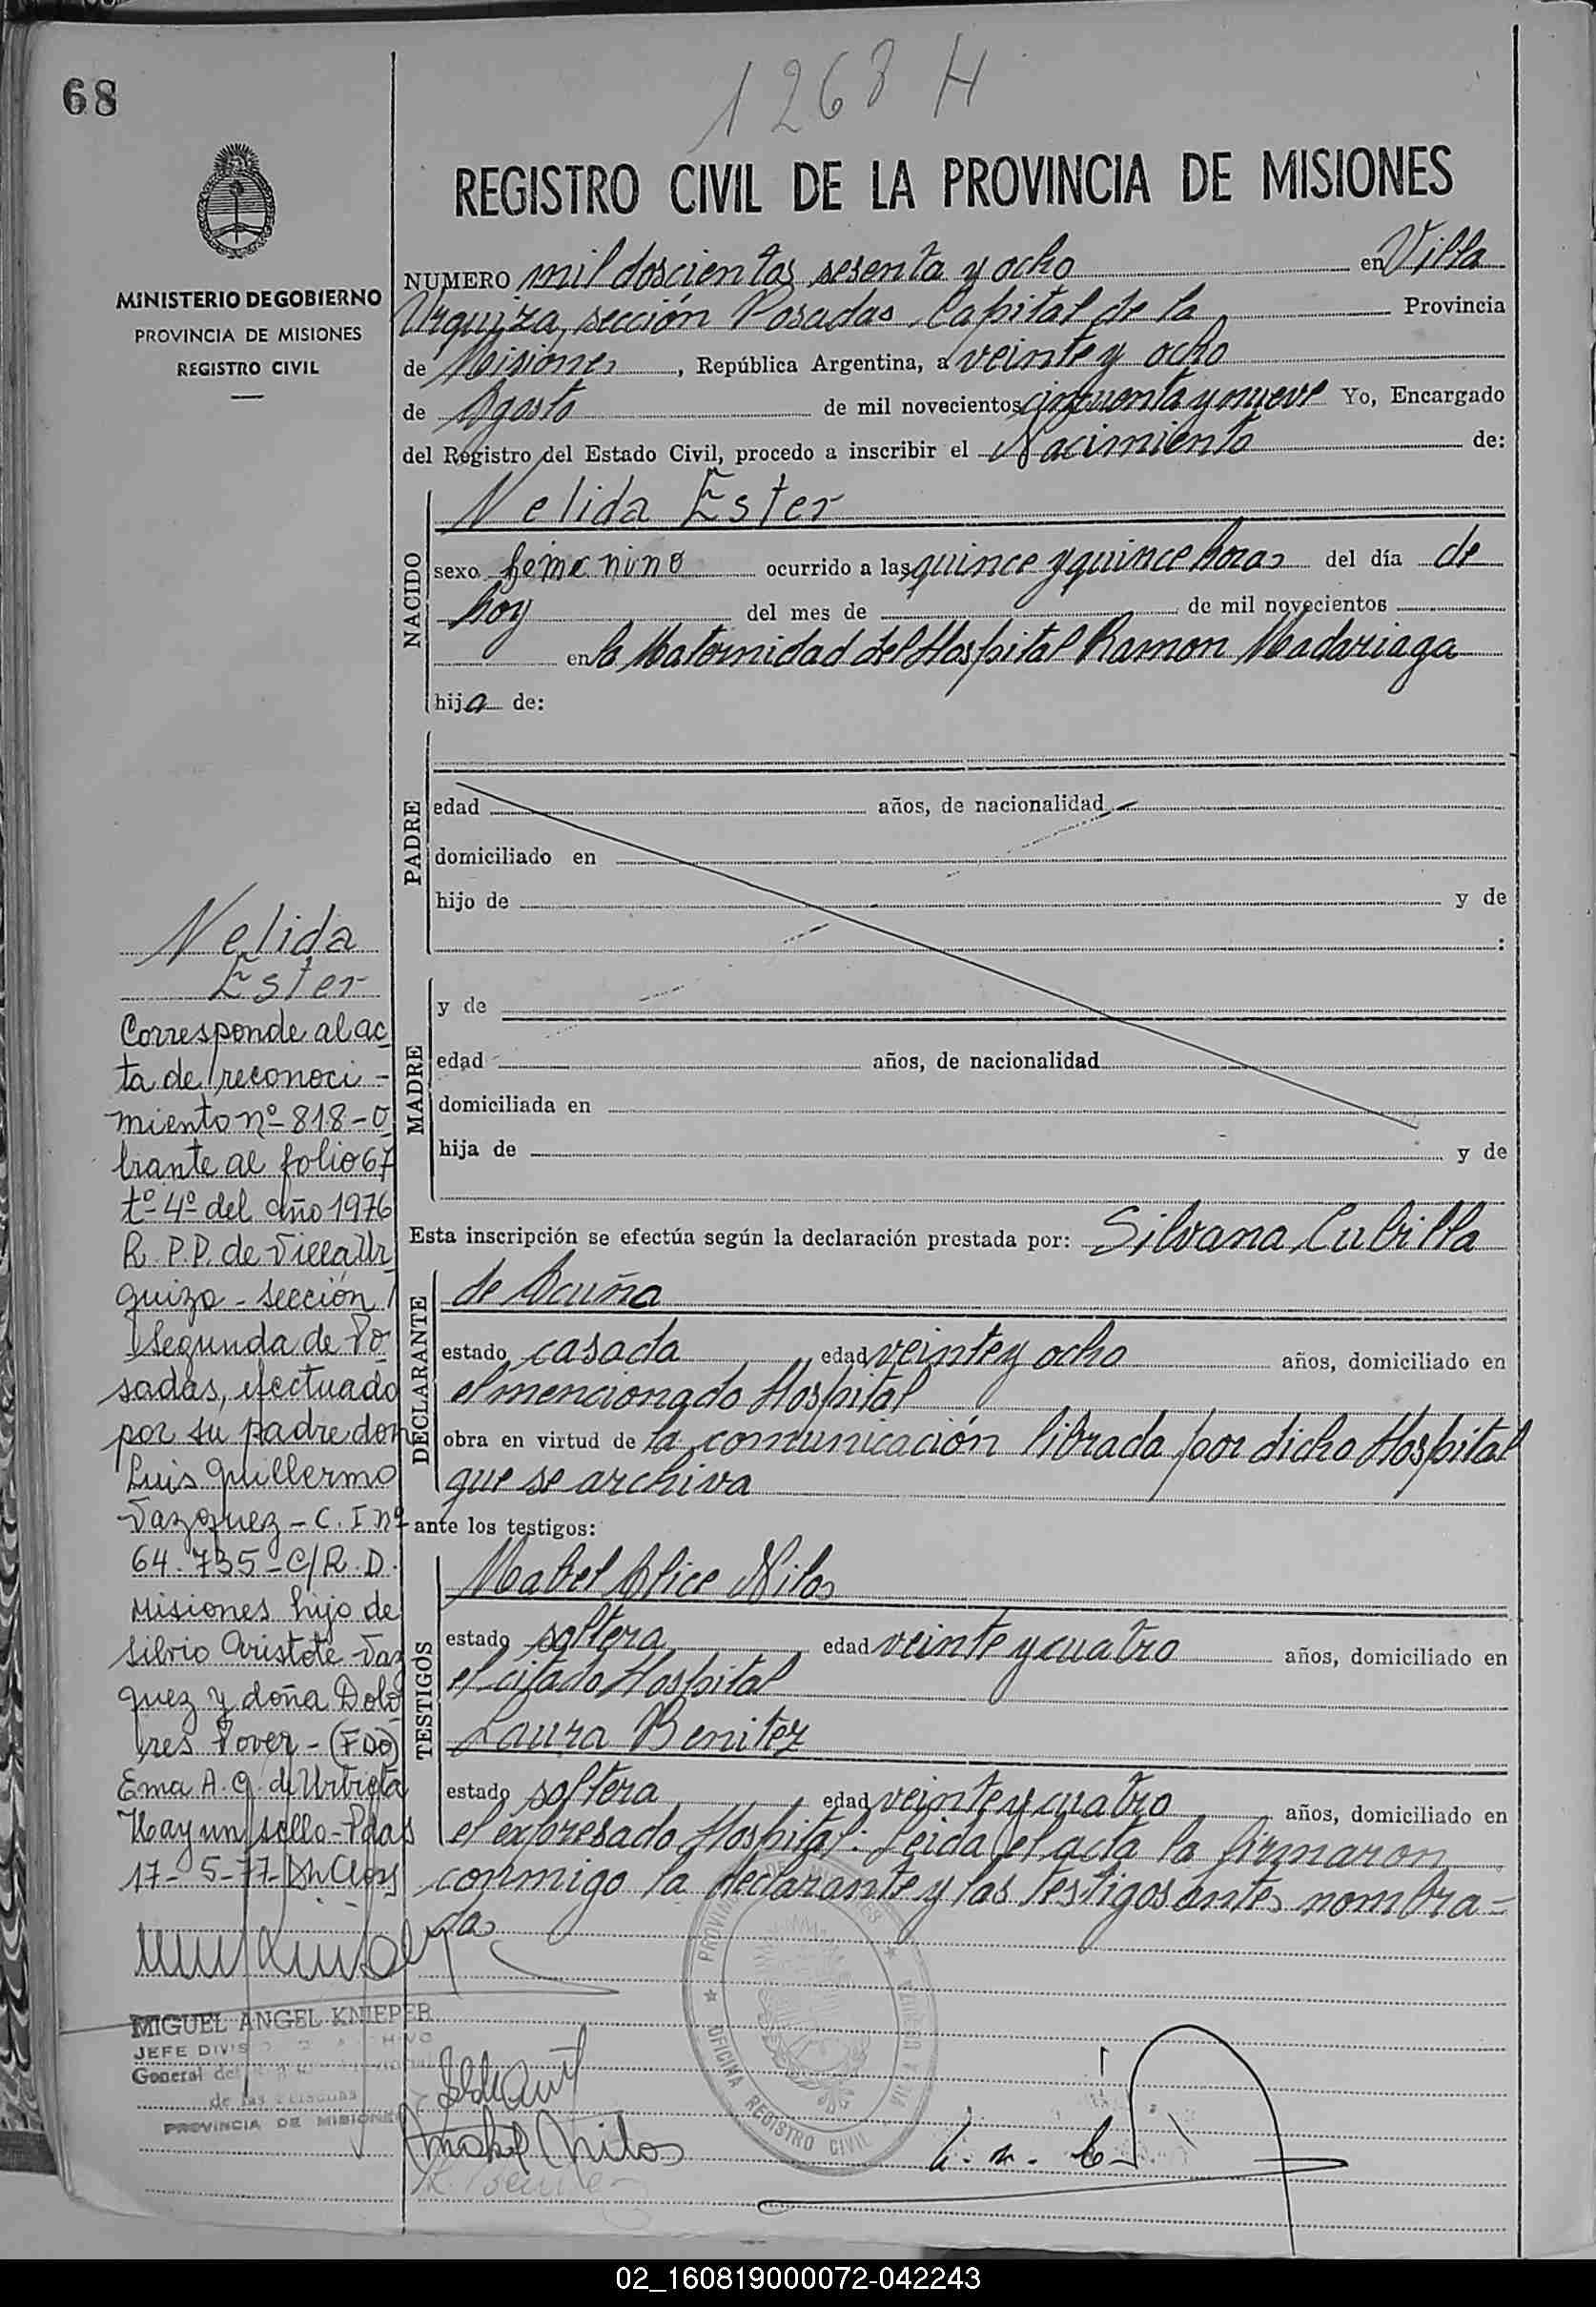 68
1268 H
REGISTRO CIVIL DE LA PROVINCIA DE MISIONES
MINISTERIO DE GOBIERNO
PROVINCIA DE MISIONES
REGISTRO CIVIL
NUMERO mil doscientos sesenta y ocho en Villa
Urquiza, sección Posadas Capital de la Provincia
de Misiones, República Argentina, a veinte y ocho
de Agosto de mil novecientos cincuenta y nueve Yo, Encargado
del Registro del Estado Civil, procedo a inscribir el Nacimiento de:
NACIDO
Nelida Ester
sexo femenino ocurrido a las quince y quince horas del día de
hoy del mes de de mil novecientos
en la Maternidad del Hospital Ramon Madariaga
hija de:
PADRE
edad años, de nacionalidad
domiciliado en
hijo de y de
:
MADRE
y de
edad años, de nacionalidad
domiciliada en
hija de y de
Esta inscripción se efectúa según la declaración prestada por: Silvana Cubilla
DECLARANTE
de Acuña
estado casada edad veinte y ocho años, domiciliado en
el mencionado Hospital
obra en virtud de la comunicación librada por dicho Hospital
que se archiva
ante los testigos:
TESTIGOS
Mabel Alice Nilos
estado soltera edad veinte y cuatro años, domiciliado en
el citado Hospital
Laura Benitez
estado soltera edad veinte y cuatro años, domiciliado en
el expresado Hospital. Leida el acta la firmaron
conmigo la declarante y las testigos antes nombra=
das
Nelida
Ester
Corresponde al ac
ta de reconoci-
miento nº 818-o
brante al folio 67
tº 4º del año 1976
R.P.P. de Villa Ur
quiza - sección
segunda de Po
sadas, efectuado
por su padre don
Luis Guillermo
Vazquez - C. I nº
64.735 - C/R.D.
Misiones hijo de
Silvio Aristote Vaz
quez y doña Dolo
res Pover - (FDO)
Ema A. G. de Urbieta
Hay un sello - Pdas
17-5-77
MIGUEL ANGEL KNIEPER
JEFE DIVIS
General del
de las Personas
PROVINCIA DE MISIONES
Mabel Nilos
PROVINCIA DE MISIONES
OFICINA REGISTRO CIVIL
02_160819000072-042243